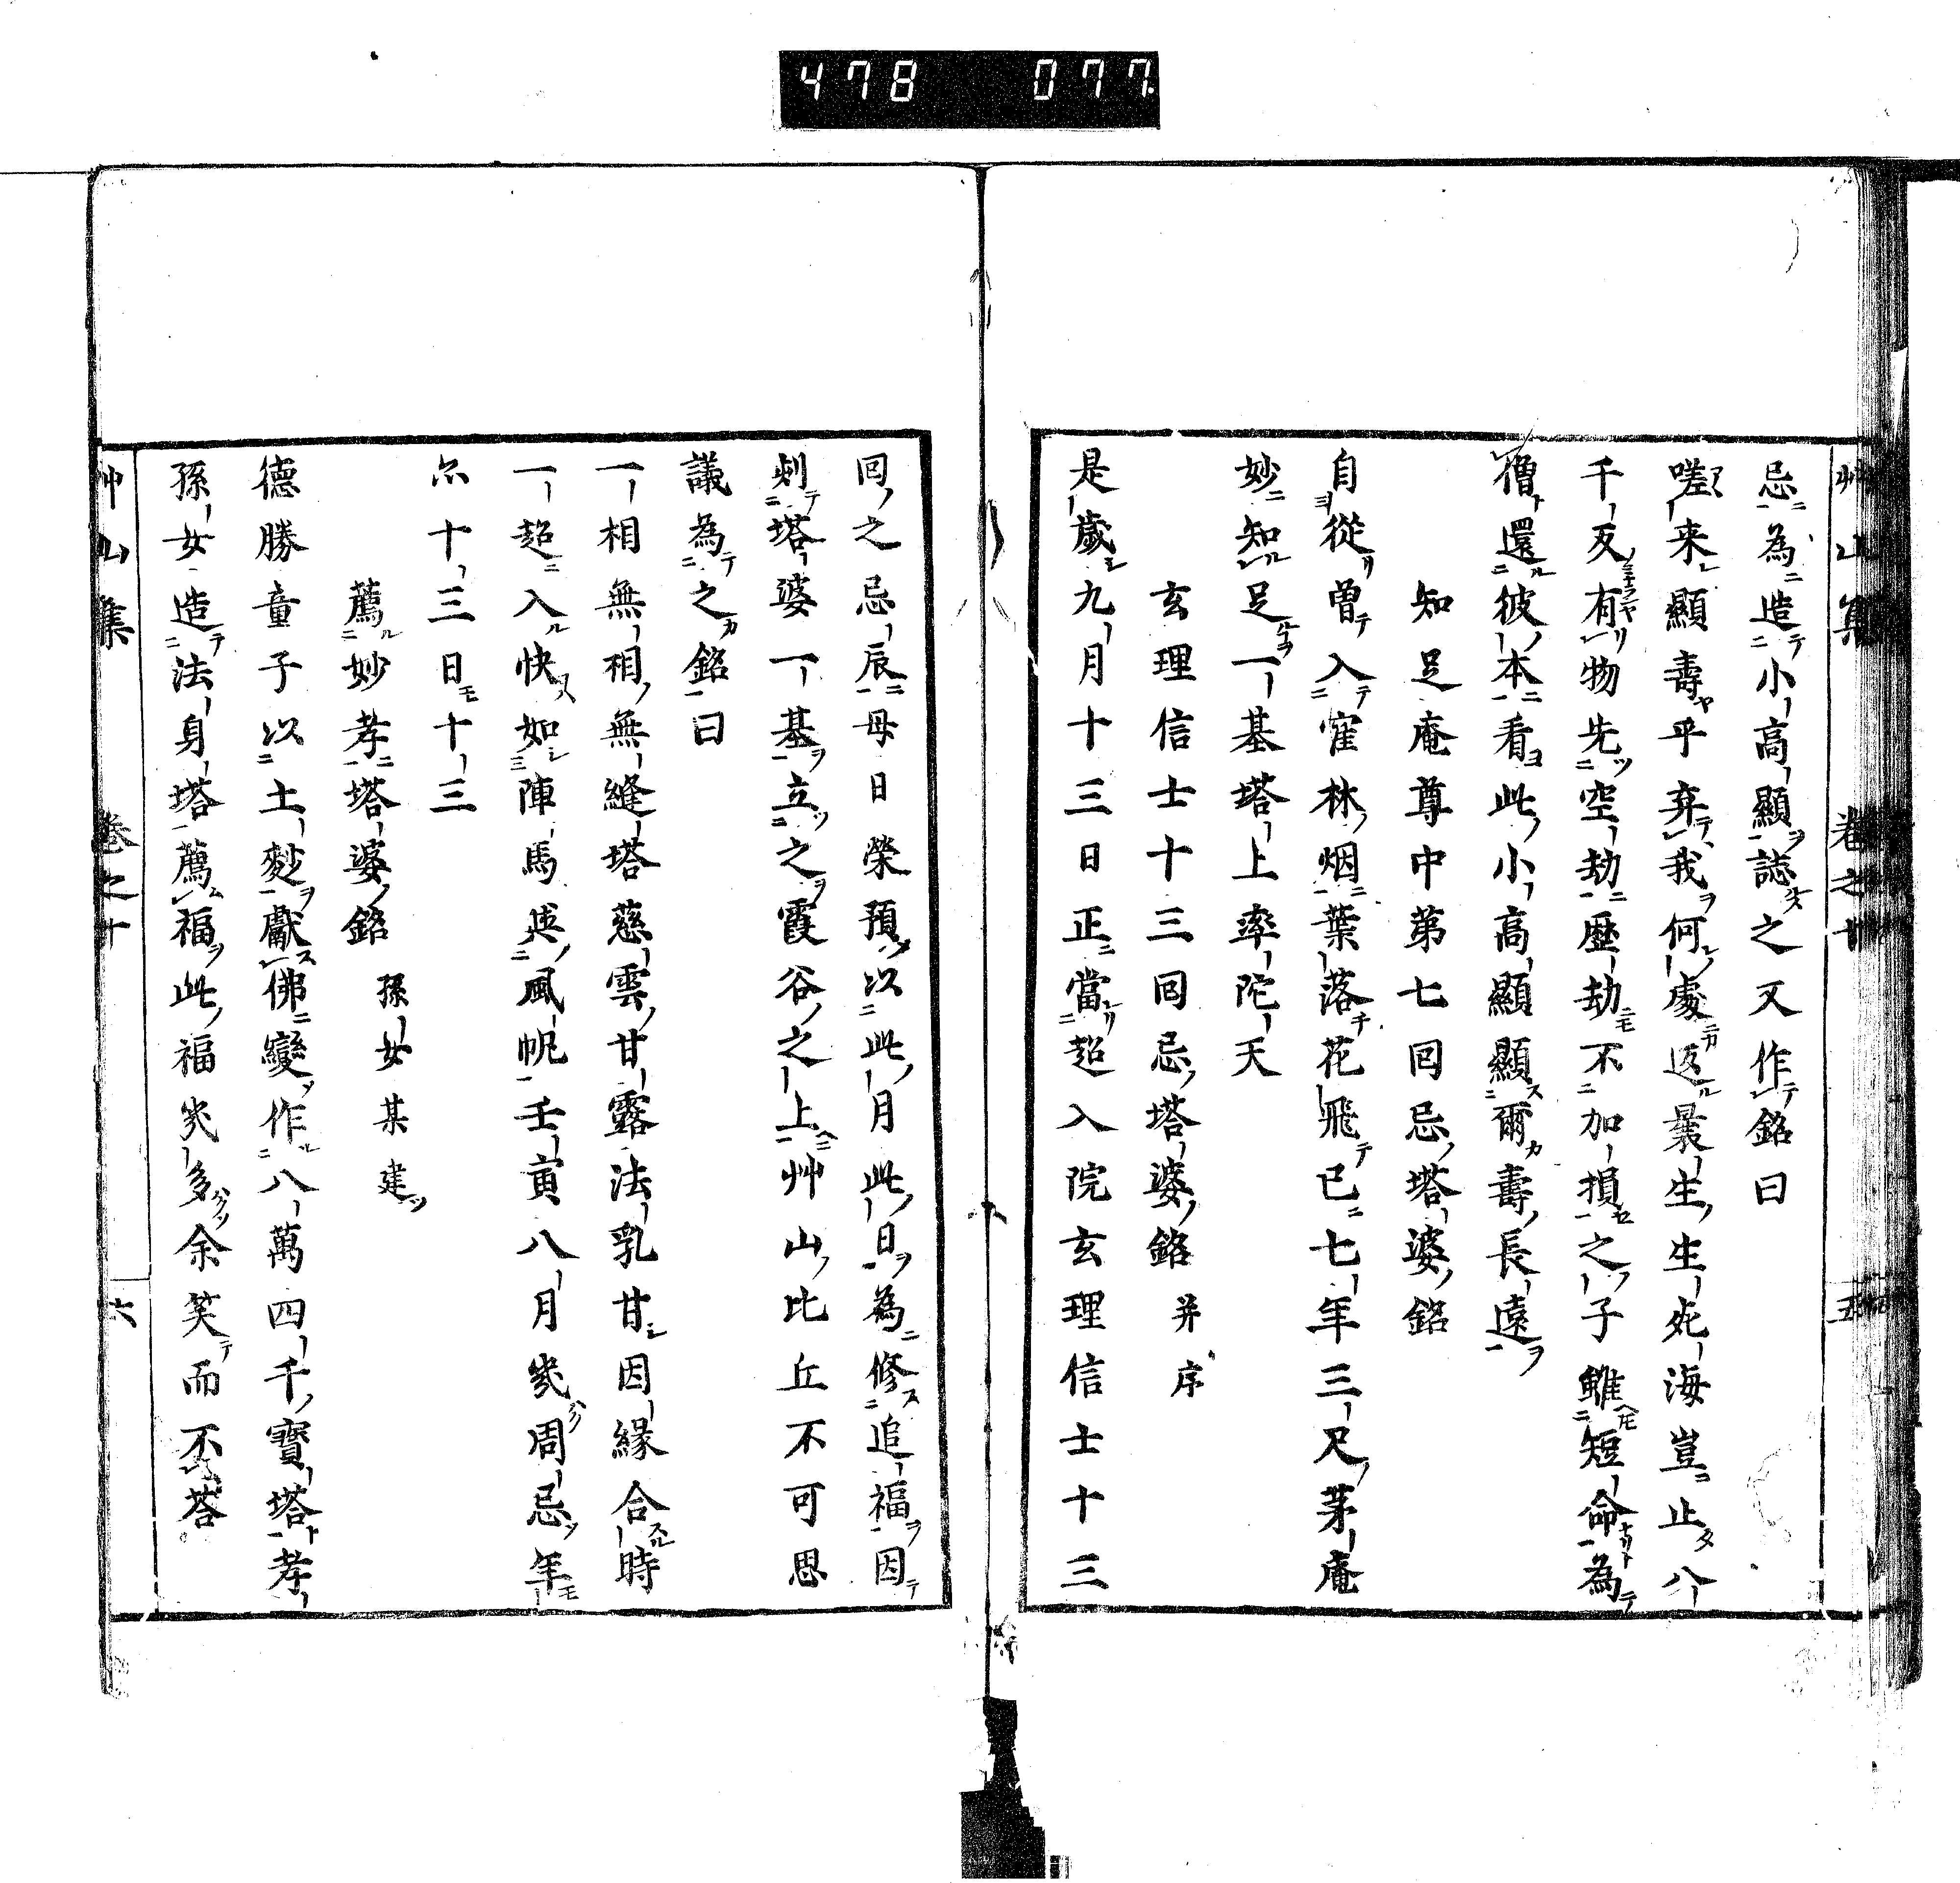 478 077.
艸山集 卷之十 五
忌為造小高顯誌之又作銘曰
嗟来顯壽乎弃我何處返曩生生死海豈止八
千反有物先空劫歷劫不加損之子雖短命為
僧還彼本看此小高顯顯爾壽長遠
知足庵尊中第七囘忌塔婆銘
自從曽入寉林烟葉落花飛已七年三尺茅庵
妙知足一基塔上率陀天
玄理信士十三囘忌塔婆銘 并序
是歲九月十三日正當超入院玄理信士十三
囘之忌辰母日榮預以此月此日為修追福因
刹塔婆一基立之霞谷之上艸山比丘不可思
議為之銘曰
一相無相無縫塔慈雲甘露法乳甘因緣合時
一超入快如陣馬與風帆壬寅八月幾周忌年
尒十三日十三
薦妙孝塔婆銘 孫女某建
德勝童子以土麨獻佛變作八萬四千寶塔孝
孫女造法身塔薦福此福幾多余笑而不荅
艸山集 卷之十 六